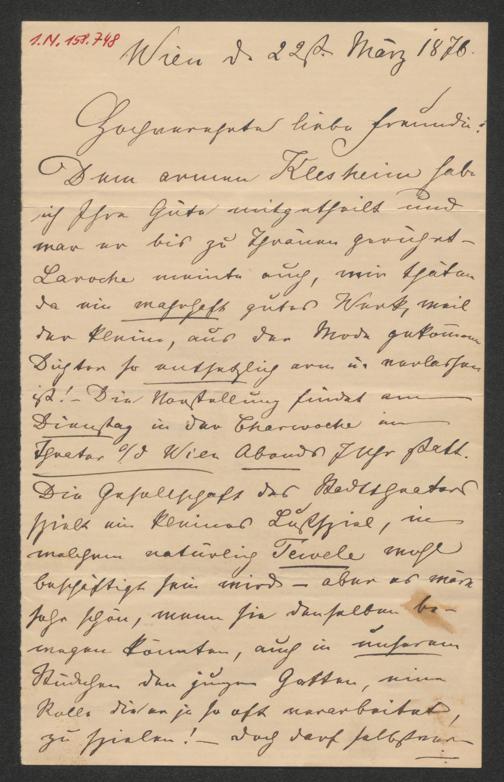 I.N. 158.748
Wien d. 22st. März 1876.
Hochverehrte liebe Freundin!
Dem armen Klesheim habe
ich Ihre Güte mitgetheilt und
war er bis zu Thränen gerührt –
Laroche meinte auch, wir thäten
da ein wahrhaft gutes Werk, weil
der kleine, aus der Mode gekommene
Dichter so entsetzlich arm u. verlassen
ist! – Die Vorstellung findet am
Dienstag in der Charwoche im
Theater a/d Wien Abends 7 Uhr statt.
Die Gesellschaft des Stadttheaters
spielt ein kleines Lustspiel, in
welchem natürlich Tewele wohl
beschäftigt sein wird – aber es wäre
sehr schön, wenn sie denselben be-
wegen könnten, auch in unserem
Stückchen den jungen Gatten, eine
Rolle die er ja so oft verarbeitet,
zu spielen! – doch darf